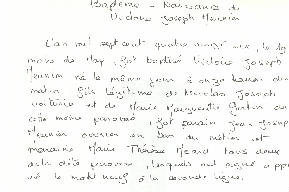 Baptême - Naissance de
Victoire Joseph Meunier
L'an mil sept cent quatre vingt six, le 19
mois de May, fut baptisé Victoire Joseph
Meunier né le même jour à onze heures du
matin fils légitime de Nicolas Joseph
et de Marie Marguerite
cette même paroisse, fut parain Jean Joseph
Meunier garçon du métier et
maraine Marie Thérèse tous deux
de paroisse, lesquels ont signé
le mot neuf à la seconde ligne.